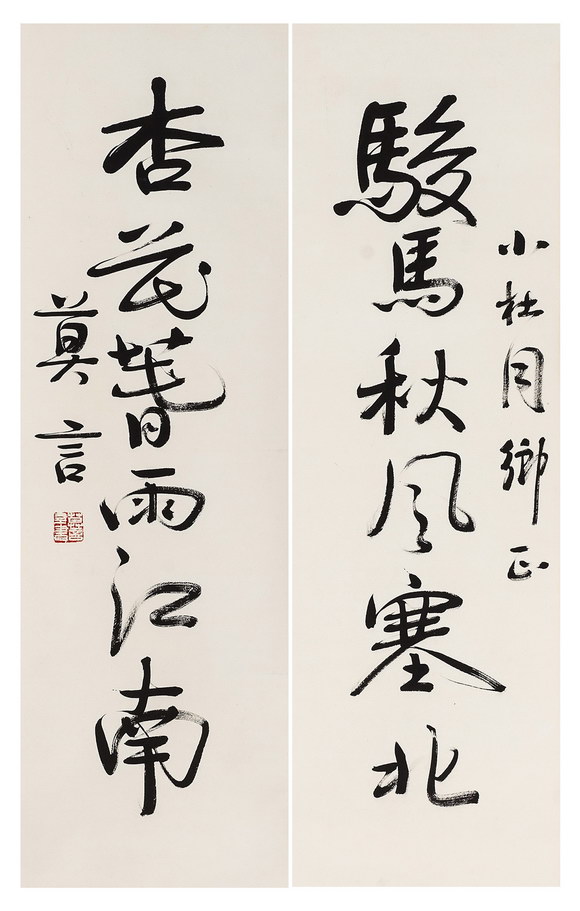 小杜同鄉正
駿馬秋風塞北
杏花萅雨江南
莫言